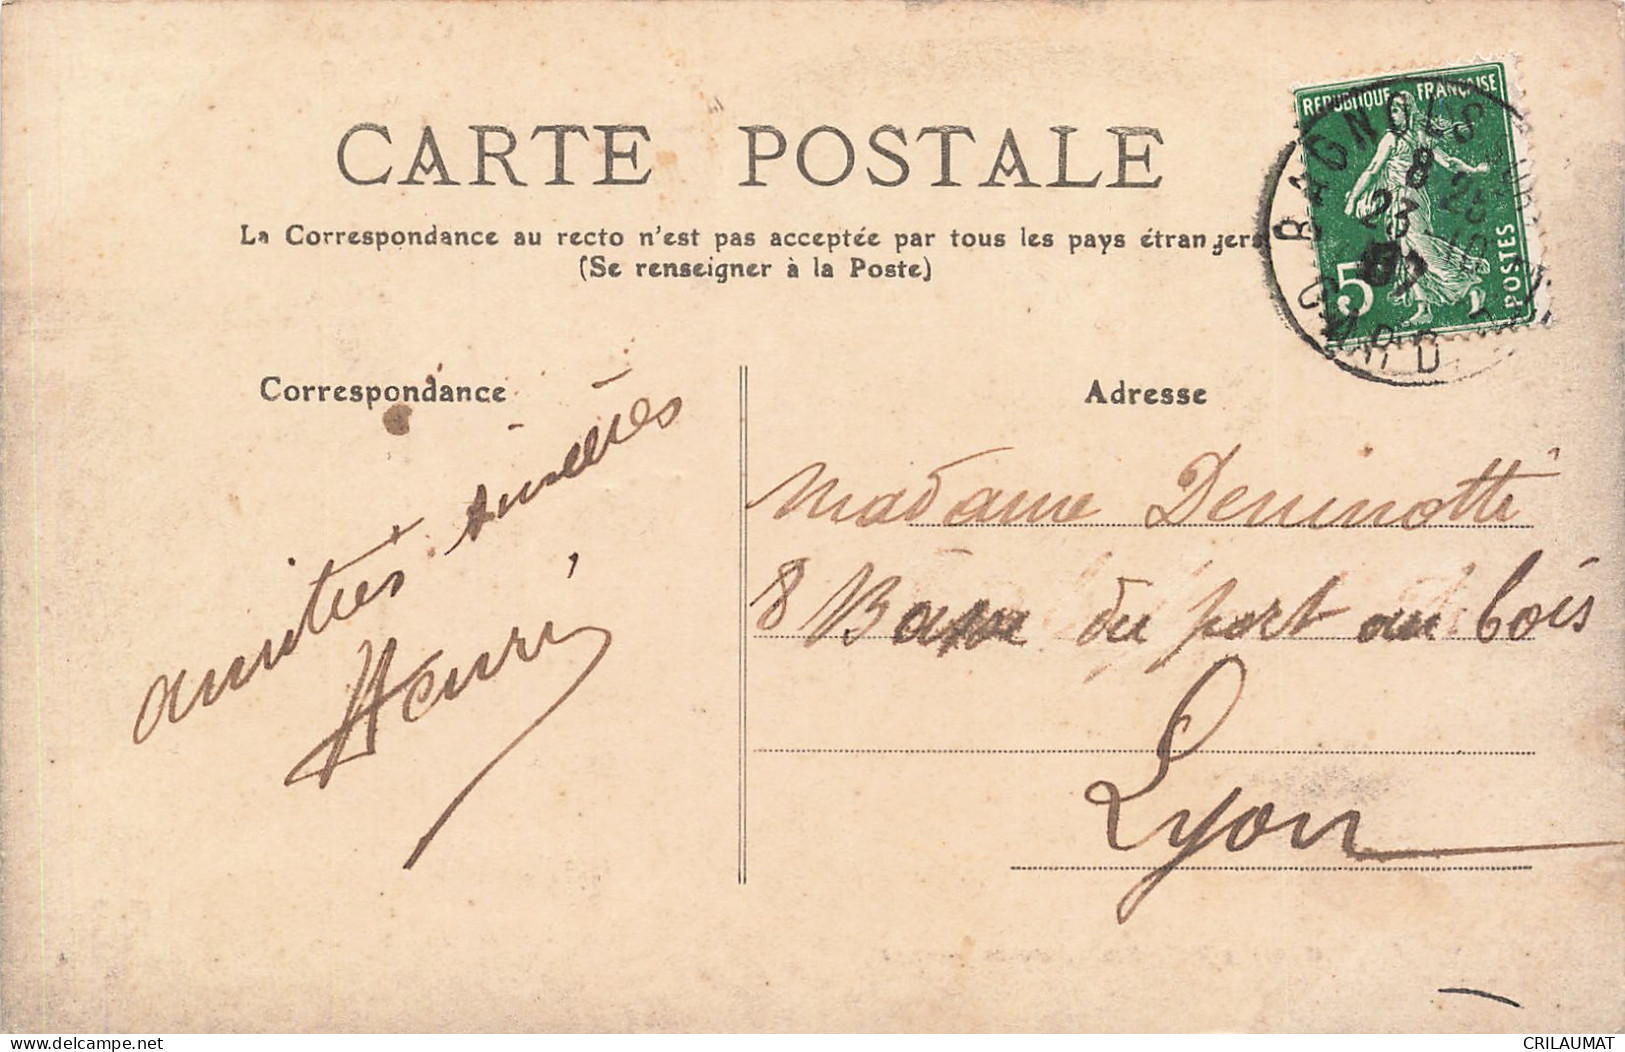 CARTE POSTALE
La Correspondance au recto n'est pas acceptée par tous les pays étrangers
(Se renseigner à la Poste)
REPUBLIQUE FRANÇAISE
5
POSTES
BAGNOLS
8 25
23 - 10
07
GARD
Correspondance
amitiés sincères
Henri
Adresse
Madame Deninotti
8 du port au bois
Lyon
CRILAUMAT